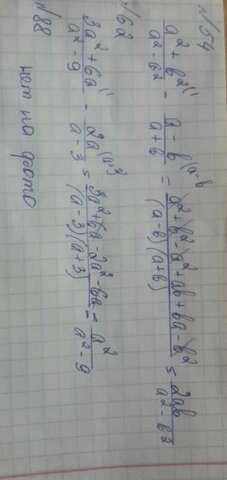 №54
a² + b² / a² - b² ⁽¹ - a - b / a + b ⁽a-b = a² + b² - a² + ab + ba - b² / (a - b)(a + b) = 2ab / a² - b²
№62
3a² + 6a / a² - 9 ⁽¹ - 2a / a - 3 ⁽a+3 = 3a² + 6a - 2a² - 6a / (a - 3)(a + 3) = a² / a² - 9
№88
нет на фото